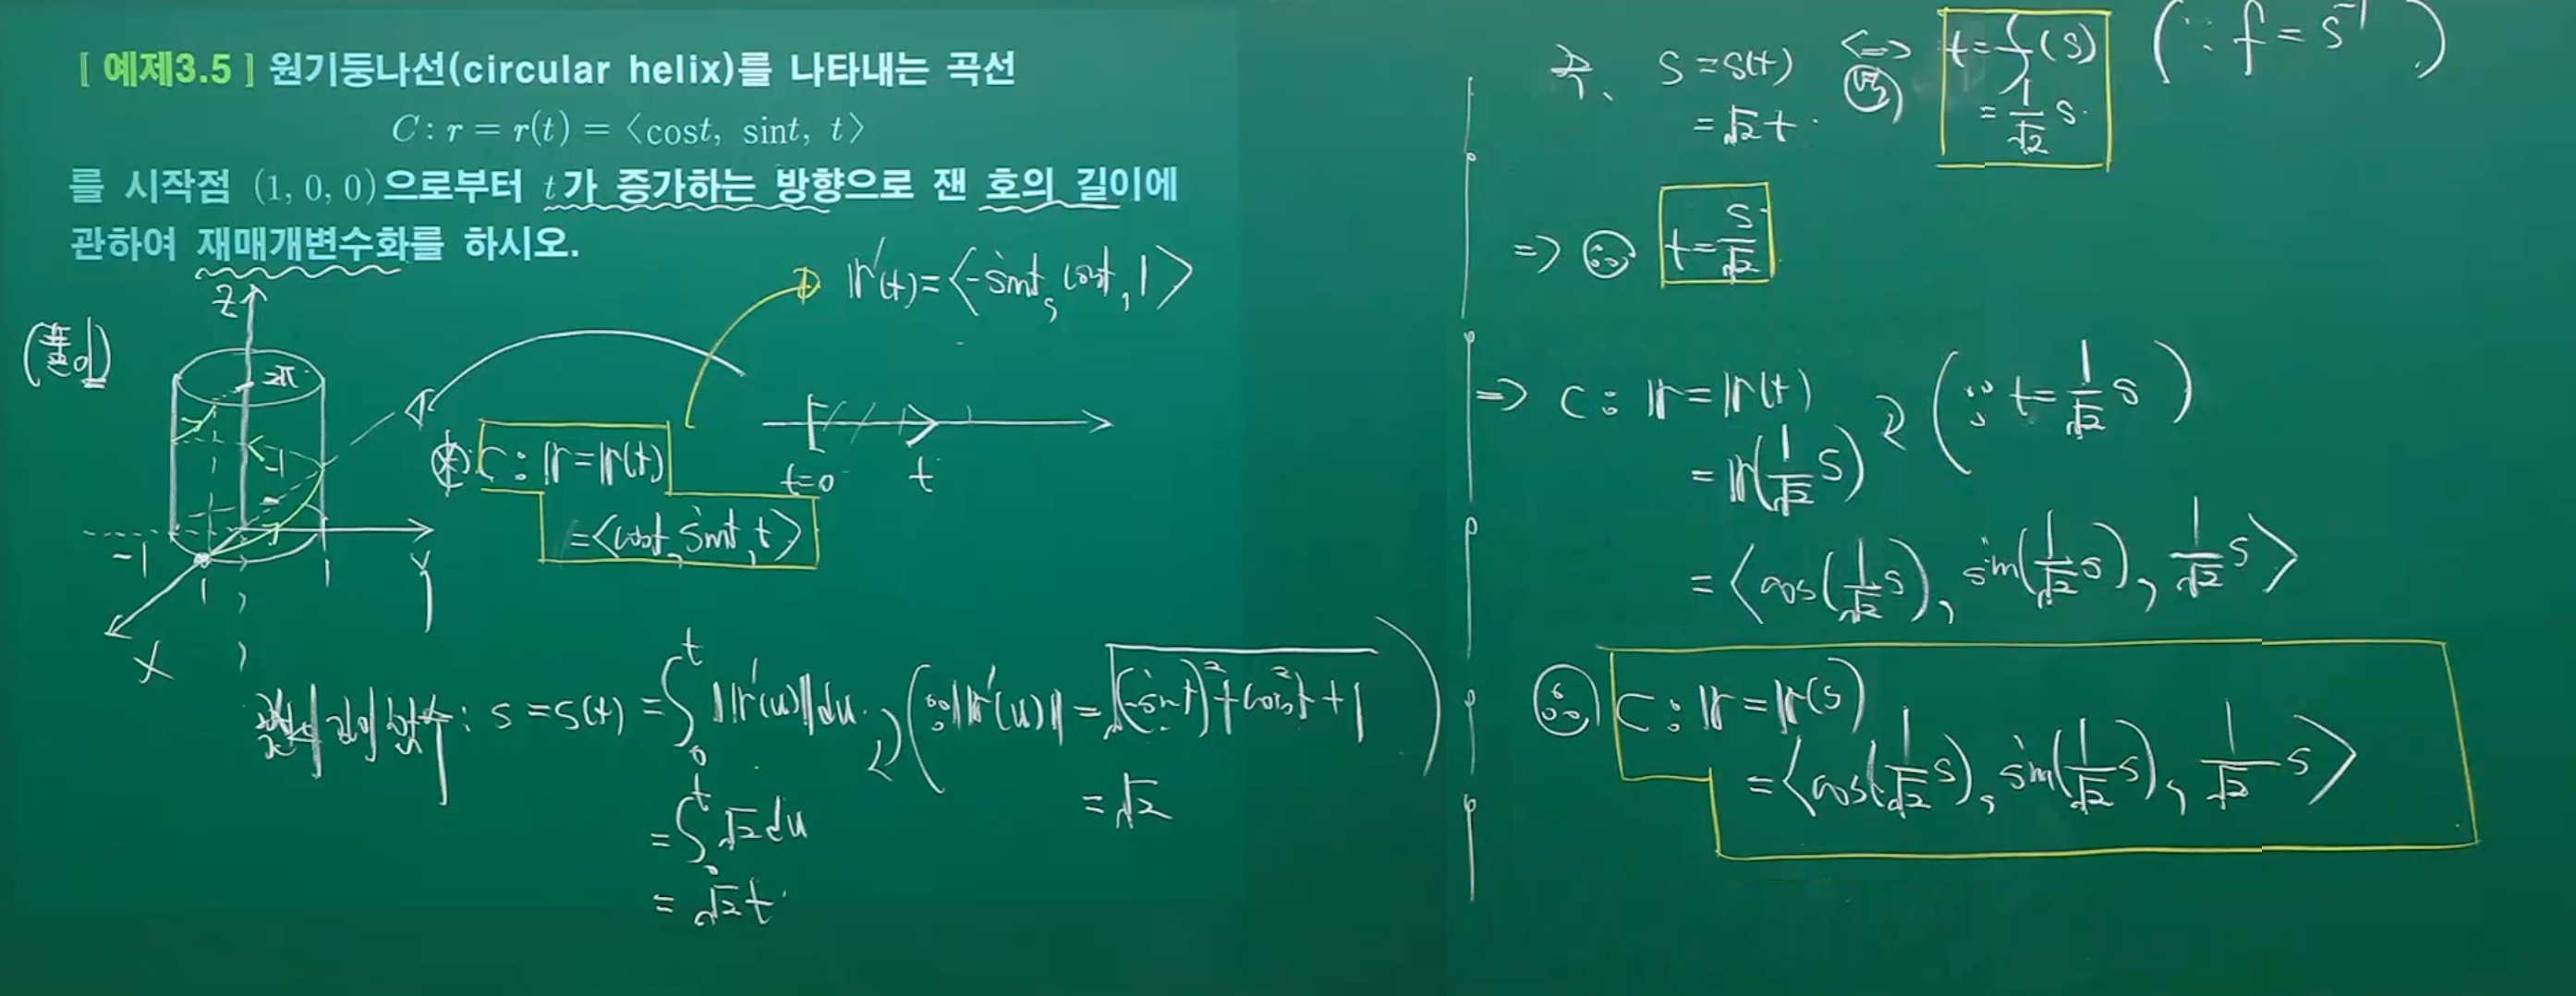 [ 예제3.5 ] 원기둥나선(circular helix)를 나타내는 곡선
C : r = r(t) = ⟨cost, sint, t⟩
를 시작점 (1, 0, 0)으로부터 t가 증가하는 방향으로 잰 호의 길이에
관하여 재매개변수화를 하시오.
(풀이)
z
2π
-1
-1
1
1
y
x
r'(t)=⟨-sint, cost, 1⟩
C : r=r(t)
=⟨cost, sint, t⟩
t=0
t
호의 길이 함수 : s = s(t) = ∫₀ᵗ ||r'(u)||du. (∵ ||r'(u)|| = √((-sint)²+cos²t+1)
= √2 )
= ∫₀ᵗ √2 du
= √2 t
즉, s = s(t) ⟺ t = f(s) (∵ f = s⁻¹)
= √2 t = 1/√2 s
⇒ ∴ t = s/√2
⇒ C : r = r(t)
= r(1/√2 s) (∵ t = 1/√2 s)
= ⟨cos(1/√2 s), sin(1/√2 s), 1/√2 s⟩
∴ C : r = r(s)
= ⟨cos(1/√2 s), sin(1/√2 s), 1/√2 s⟩